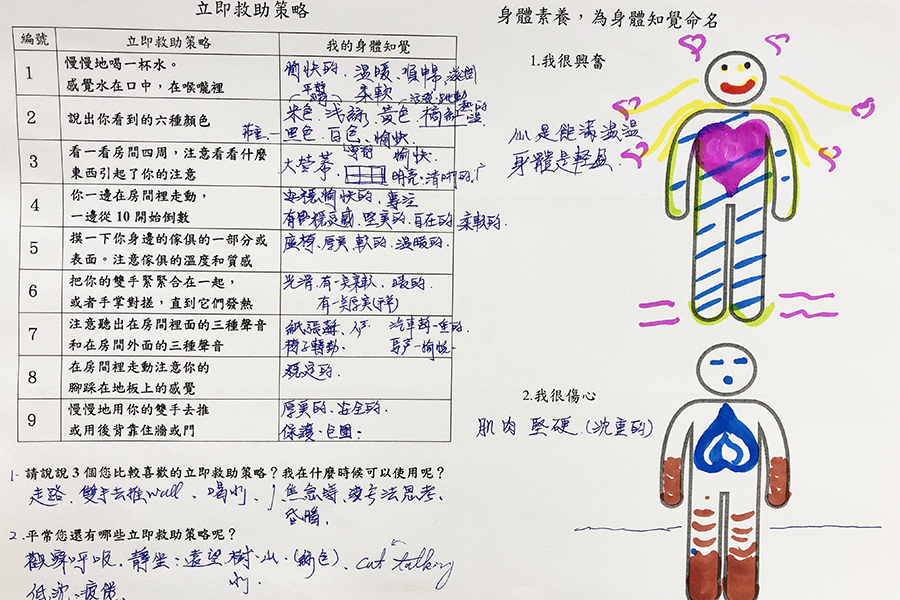 立即救助策略
編號 立即救助策略 我的身體知覺
1 慢慢地喝一杯水。
感覺水在口中，在喉嚨裡
愉快的、溫暖、
柔軟
2 說出你看到的六種顏色
米色、淺綠、黃色、
黑色、白色、愉快、
3 看一看房間四周，注意看看什麼
東西引起了你的注意
愉快、
大螢幕、 明亮、清晰的、
4 你一邊在房間裡走動，
一邊從 10 開始倒數
安穩、愉快的、專注
有穩定感、堅實的、自在的、柔軟的、
5 摸一下你身邊的傢俱的一部分或
表面。注意傢俱的溫度和質感
座椅、厚實、軟的、溫暖的、
6 把你的雙手緊緊合在一起，
或者手掌對搓，直到它們發熱
光滑、有一點柔軟、暖的、
有一點厚實
7 注意聽出在房間裡面的三種聲音
和在房間外面的三種聲音
紙張聲、人聲 汽車聲
椅子轉動、
8 在房間裡走動注意你的
腳踩在地板上的感覺
穩定的、
9 慢慢地用你的雙手去推
或用後背靠住牆或門
厚實的、安全的、
保護、包圍
1- 請說說 3 個您比較喜歡的立即救助策略？我在什麼時候可以使用呢？
走路、雙手去推wall、喝水、焦急時、沒辦法思考、
昏腦、
2. 平常您還有哪些立即救助策略呢？
觀察呼吸、靜坐、遠望樹、山、(綠色)、cut talking
水、
低沈、疲倦、
身體素養，為身體知覺命名
1.我很興奮
心是飽滿溫溫
身體是輕盈
2.我很傷心
肌肉 堅硬、(沈重的)